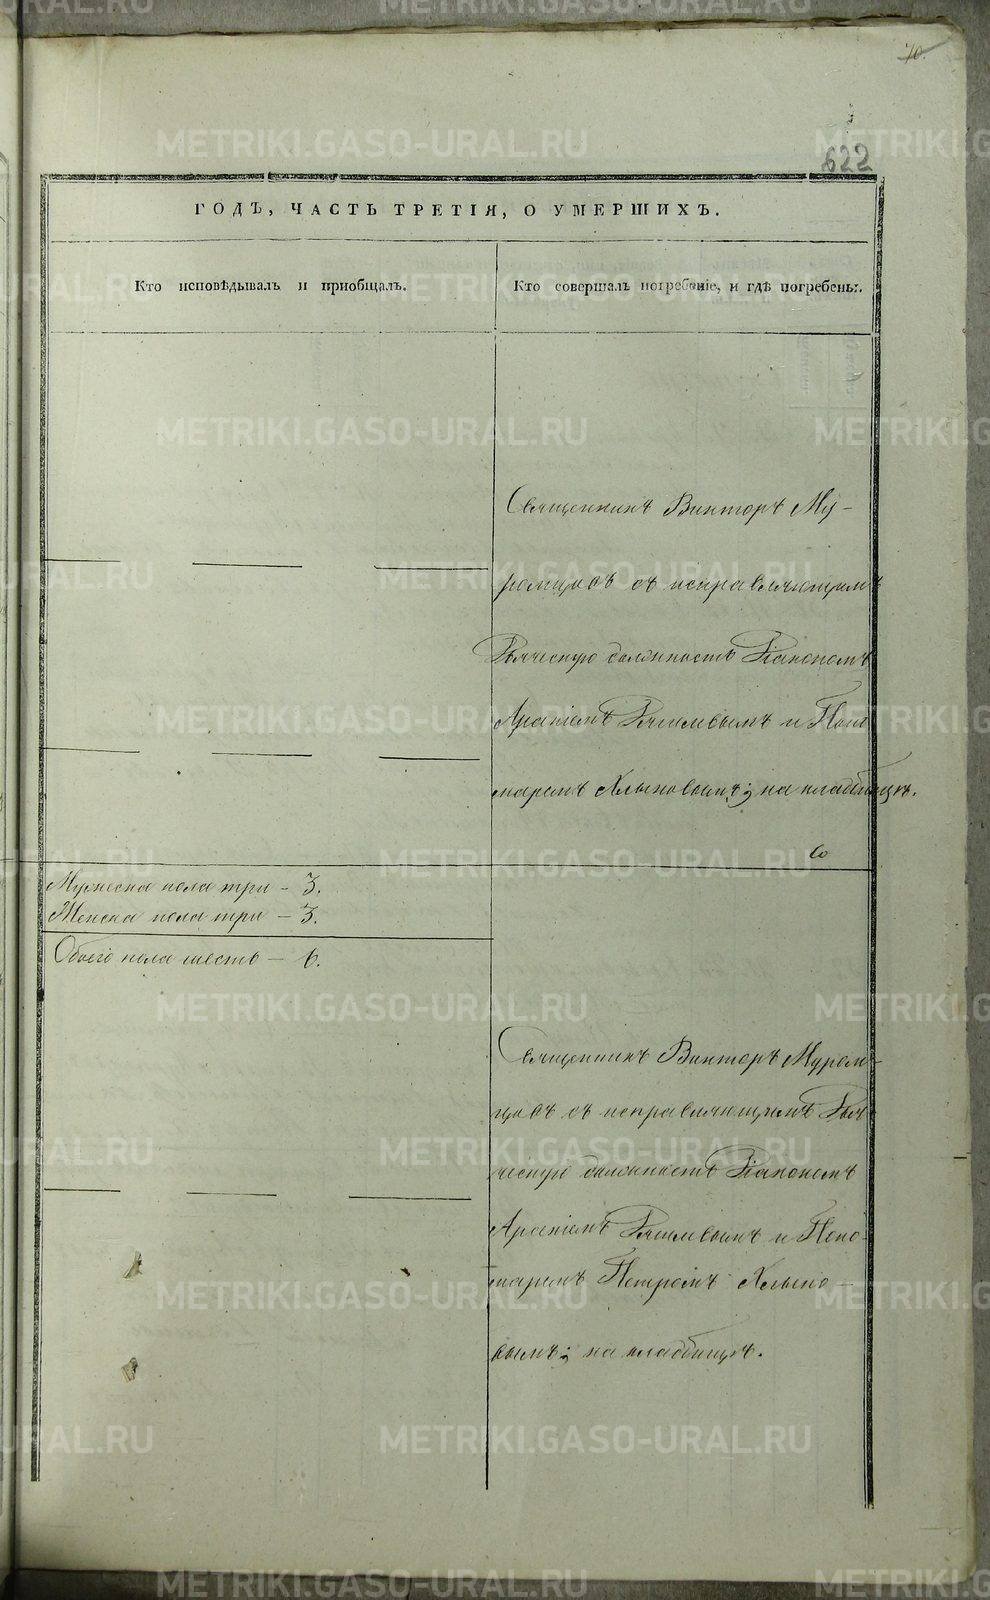 70.
622
ГОДЪ, ЧАСТЬ ТРЕТІЯ, О УМЕРШИХЪ.
Кто исповѣдывалъ и пріобщалъ.
Кто совершалъ погребеніе, и гдѣ погребены.
Священникъ Викторъ Му-
ромцовъ съ исправляющимъ
Дьяческую должность Діакономъ
и Поно
маремъ Хлыновымъ; на кладбищѣ.
Мужеска пола три - 3.
Женска пола три - 3.
Обоего пола шесть - 6.
Священникъ Викторъ Муром-
цовъ съ исправляющимъ Дья
ческую должность Діакономъ
и Поно-
маремъ Петромъ Хлыно-
вымъ; на кладбищѣ.
METRIKI.GASO-URAL.RU